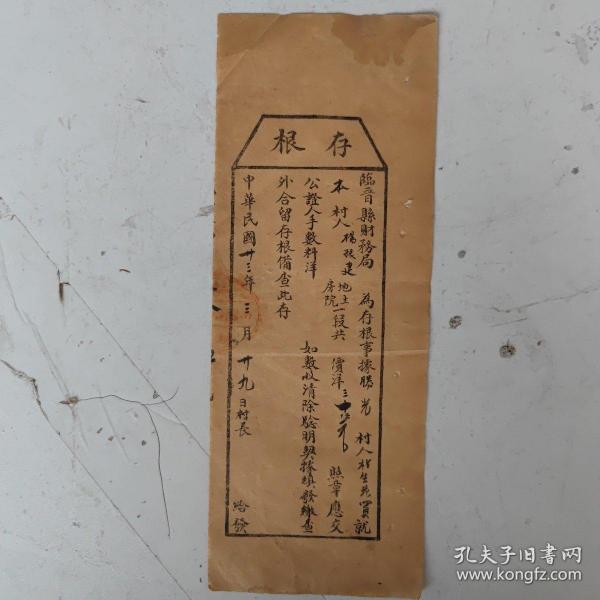 存根
臨晉縣財務局 為存根事據勝光 村人 生 買就
本村人楊 建 地土房院 一段共 價洋三十 照章應交
公證人手數料洋 如數收清除驗明契據填發繳查
外合留存根備查此存
中華民國廿三年三月廿九日村長 發
孔夫子旧书网
www.kongfz.com